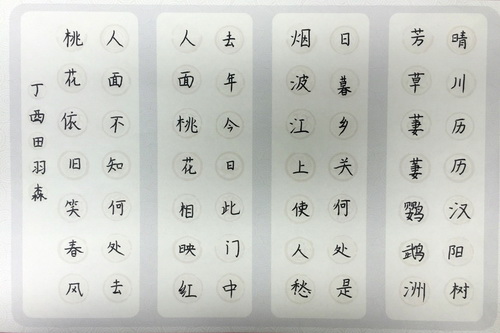 晴川历历汉阳树
芳草萋萋鹦鹉洲
日暮乡关何处是
烟波江上使人愁
去年今日此门中
人面桃花相映红
人面不知何处去
桃花依旧笑春风
丁西田羽森